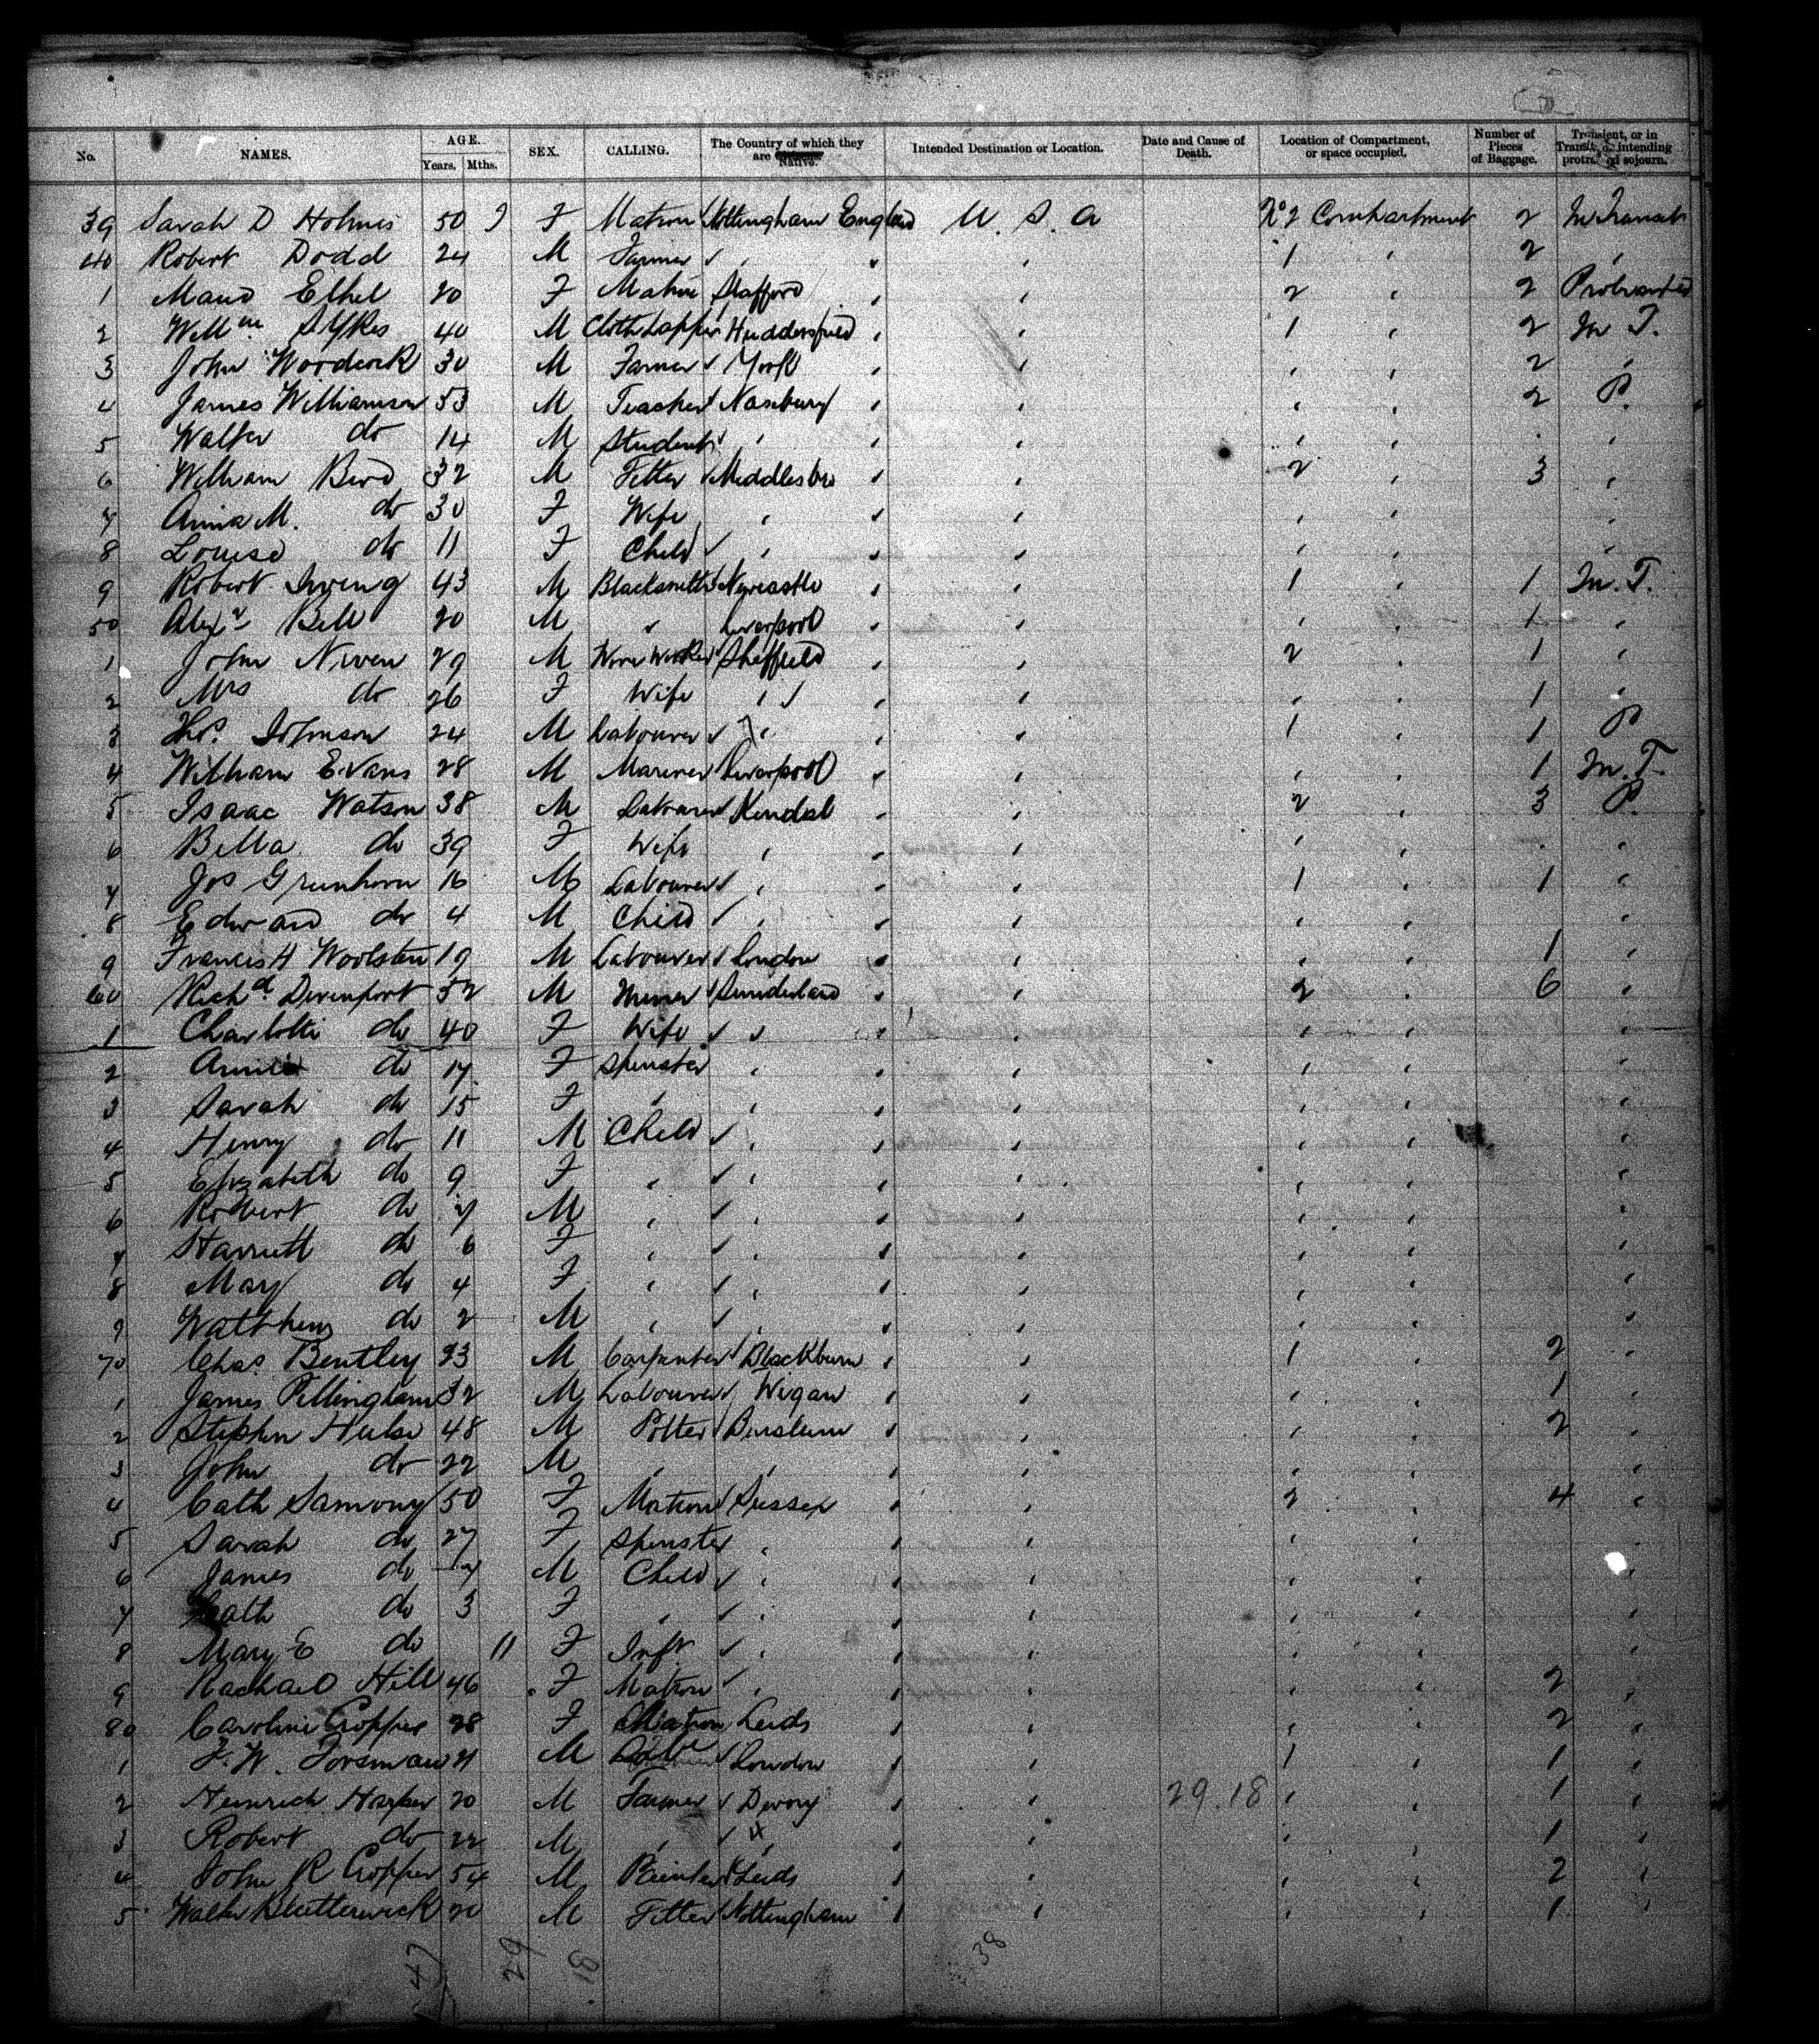 No. NAMES. AGE. Years. Mths. SEX. CALLING. The Country of which they are Native. Intended Destination or Location. Date and Cause of Death. Location of Compartment, or space occupied. Number of Pieces of Baggage. Transient, or in Transit, or intending protracted sojourn.
39 Sarah D Holmes 50 F Matron Nottingham England U. S. A No 2 Compartment 2 In Transit
40 Robert Dodd 24 M Farmer 1 2
1 Maud Ethel 20 F Matron Stafford 2 2 Protracted
2 Willm Sykes 40 M Cloth Lapper Huddersfield 1 2 In T.
3 John 30 M Farmer York 2
4 James Williamson 53 M Teacher 2 P.
5 Walter do 14 M Student
6 William Bird 32 M Fitter Middlesbro 2 3
7 Anna M. do 30 F Wife
8 Louisa do 11 F Child
9 Robert Irving 43 M Blacksmith Newcastle 1 1 In. T.
50 Alexr Bell 20 M Liverpool 1
1 John Niven 29 M Sheffield 2 1
2 Mrs do 26 F Wife 1
3 Thos. Johnson 24 M Labourer 1 1 P
4 William Evans 28 M Mariner Liverpool 1 In. T.
5 Isaac Watson 38 M Labourer Kendal 2 3 P.
6 Bella do 39 F Wife
7 Jos Greenhorn 16 M Labourer 1 1
8 Edward do 4 M Child
9 Francis H Woolsten 19 M Labourer London 1
60 Richd Devenport 52 M Miner Sunderland 2 6
1 Charlotte do 40 F Wife
2 Annie do 17 F Spinster
3 Sarah do 15 F
4 Henry do 11 M Child
5 Elizabeth do 9 F
6 Robert do 7 M
7 Harriett do 6 F
8 Mary do 4 F
9 Matthew do 2 M
70 Chas. Bentley 23 M Carpenter Blackburn 1 2
1 James Pillingham 32 M Labourer Wigan 1
2 Stephen Hulse 48 M Potter Burslem 2
3 John do 22 M
4 Cath Samony 50 F Matron Sussex 2 4
5 Sarah do 27 F Spinster
6 James do 7 M Child
7 Cath do 3 F
8 Mary E do 11 F Inft
9 Rachael Hill 46 F Matron 2
80 Caroline Cropper 28 F Matron Leeds 2
1 F. W. Forsman 21 M London 1 1
2 Heinrich Harper 20 M Farmer 29.18 1
3 Robert do 22 M 1
4 John R Cropper 54 M Painter Leeds 2
5 Walter Blutterwick 20 M Fitter Nottingham 1
47 29 18 38